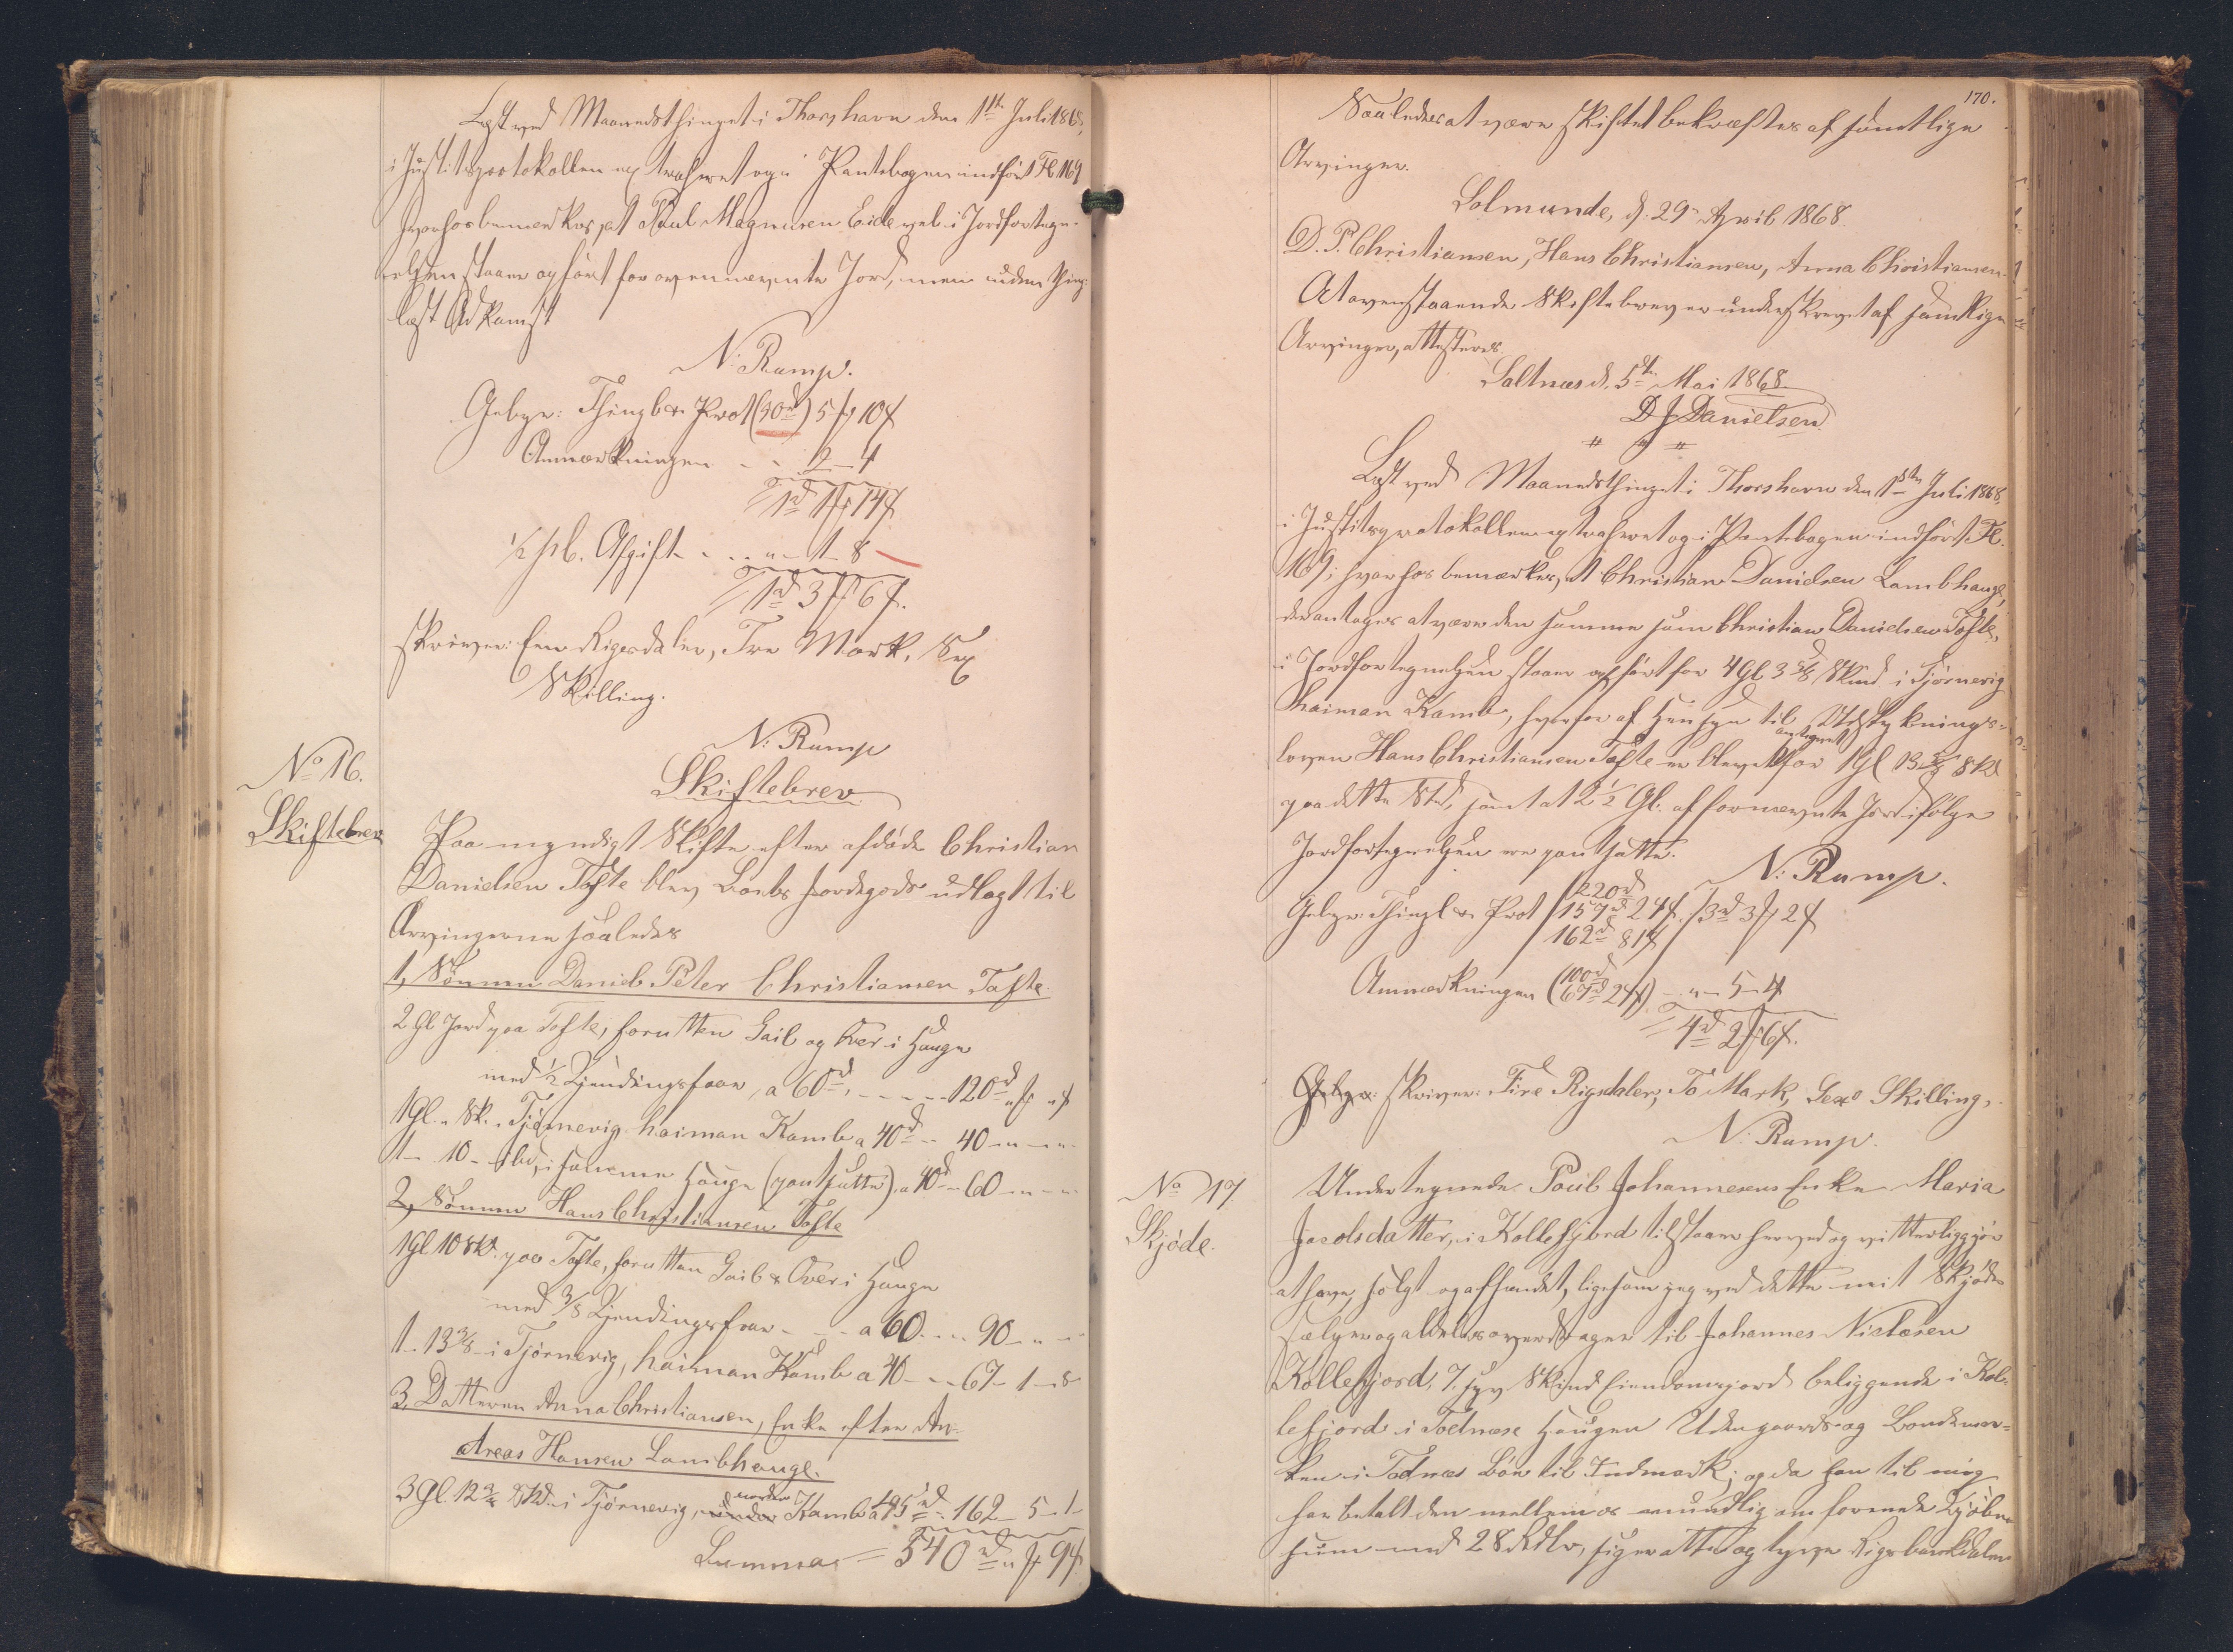 Læst ved Maanedsthinget i Thorshavn den 1ste Juli 1868,
i Justitsprotokollen extraheret og i Pantebogen indført Fl 169
hvorhos bemærkes, at Poul Magnusen Eide vel i Jordfortegn-
elsen staaer opført for ovennævnte Jord, men uden thing-
læst Adkomst
N: Rump.
Gebyr: Thingl & Prot (30rd) 5 ꝳ 10 ß
Anmærkningen - - 2 - 4
1rd 1 ꝳ 14 ß
1/2 pC. Afgift - . . " - 1 - 8
1rd 3 ꝳ 6 ß.
skriver: Een Rigsdaler, Tre Mark, Sex
Skilling.
N: Rump
No 16.
Skiftebrev
Skiftebrev
Paa myndigt Skifte efter afdøde Christian
Danielsen Tofte blev Boets Jordegods udlagt til
Arvingerne saaledes
1, Sønnen Daniel Peter Christiansen Tofte
2 Gl Jord paa Tofte, foruden Gail og Over i Hauge
med 1/2 Tjendingsfaar, a 60rd, - - - - 120rd " ꝳ " ß
1 Gl. " Sk. " Tjørnevig haiman Kamb a 40rd - 40 - " - "
1 - 10 - ibd, i samme Hauge (pantsatte) a 40rd - 60 - " - "
2, Sønnen Hans Christiansen Tofte
1 Gl 10 Skd paa Tofte, foruden Gail & Over i Hauge
med 3/8 Tjendingsfaar - - - a 60 . . . 90 - " - "
1 - 13 3/5 - i Tjørnevig, haiman Kamb a 40 - - - 67 - 1 - 8
3, Datteren Anna Christiansen, Enke efter An-
dreas Hansen Lambhauge.
3 Gl. 12 Skd. i Tjørnevig, under norden Kamb a 45rd - 162 - 5 - 1 -
Summa = 540rd " ꝳ 9 ß
170.
Saaledes at være skiftet bekræftes af samtlige
Arvinger.
Solmunde, d. 29 April 1868.
D. P. Christiansen, Hans Christiansen, Anna Christiansen
At ovenstaaende Skiftebrev er underskrevet af samtlige
Arvinger, attesteres.
Saltnæs d. 5te Mai 1868
D J Danielsen
" " "
Læst ved Maanedsthinget i Thorshavn den 1ste Juli 1868,
i Justitsprotokollen extraheret og i Pantebogen indført Fl.
169; hvorhos bemærkes, at Christian Danielsen Lambhauge,
der antages at være den samme som Christian Danielsen Tofte,
i Jordfortegnelsen staaer opført for 4 Gl. 3 Skind i Tjørnevig
haiman Kamb, hvoraf af Hensyn til Udstyknings-
loven Hans Christiansen Tofte er blevet antegnet for 1 Gl 13 Skd
paa dette Sted, samt at 2 1/2 Gl. af fornævnte Jord ifølge
Jordfortegnelsen ere pantsatte.
N: Rump.
Gebyr: Thingl & Prot 220rd 157rd 24 ß 162rd 81 ß 3rd 3 ꝳ 2 ß
Anmærkningen (100rd 67rd 24 ß) - " - 5 - 4
4rd 2 ꝳ 6 ß.
Gebyr: skriver: Fire Rigsdaler, To Mark, Sex Skilling.
N: Rump.
No 17
Skjøde.
Undertegnede Poul Johannesens Enke Maria
Jacobsdatter, i Kollefjord tilstaaer herved og vitterliggjør
at have solgt og afhændet, ligesom jeg ved dette mit Skjøde
sælger og aldeles overdrager til Johannes Niclasen
Kollefjord, 7, syv Skind Eiendomsjord beliggende i Kol-
lefjord i Todnæse Haugen Udengaards og Bondemar-
ken i Todnes Bøn til Indmark; og da han til mig
har betalt den mellem os mundtlig omforenede Kjøbe-
sum med 28 Rdlr, siger otte og tyve Rigsbankdaler